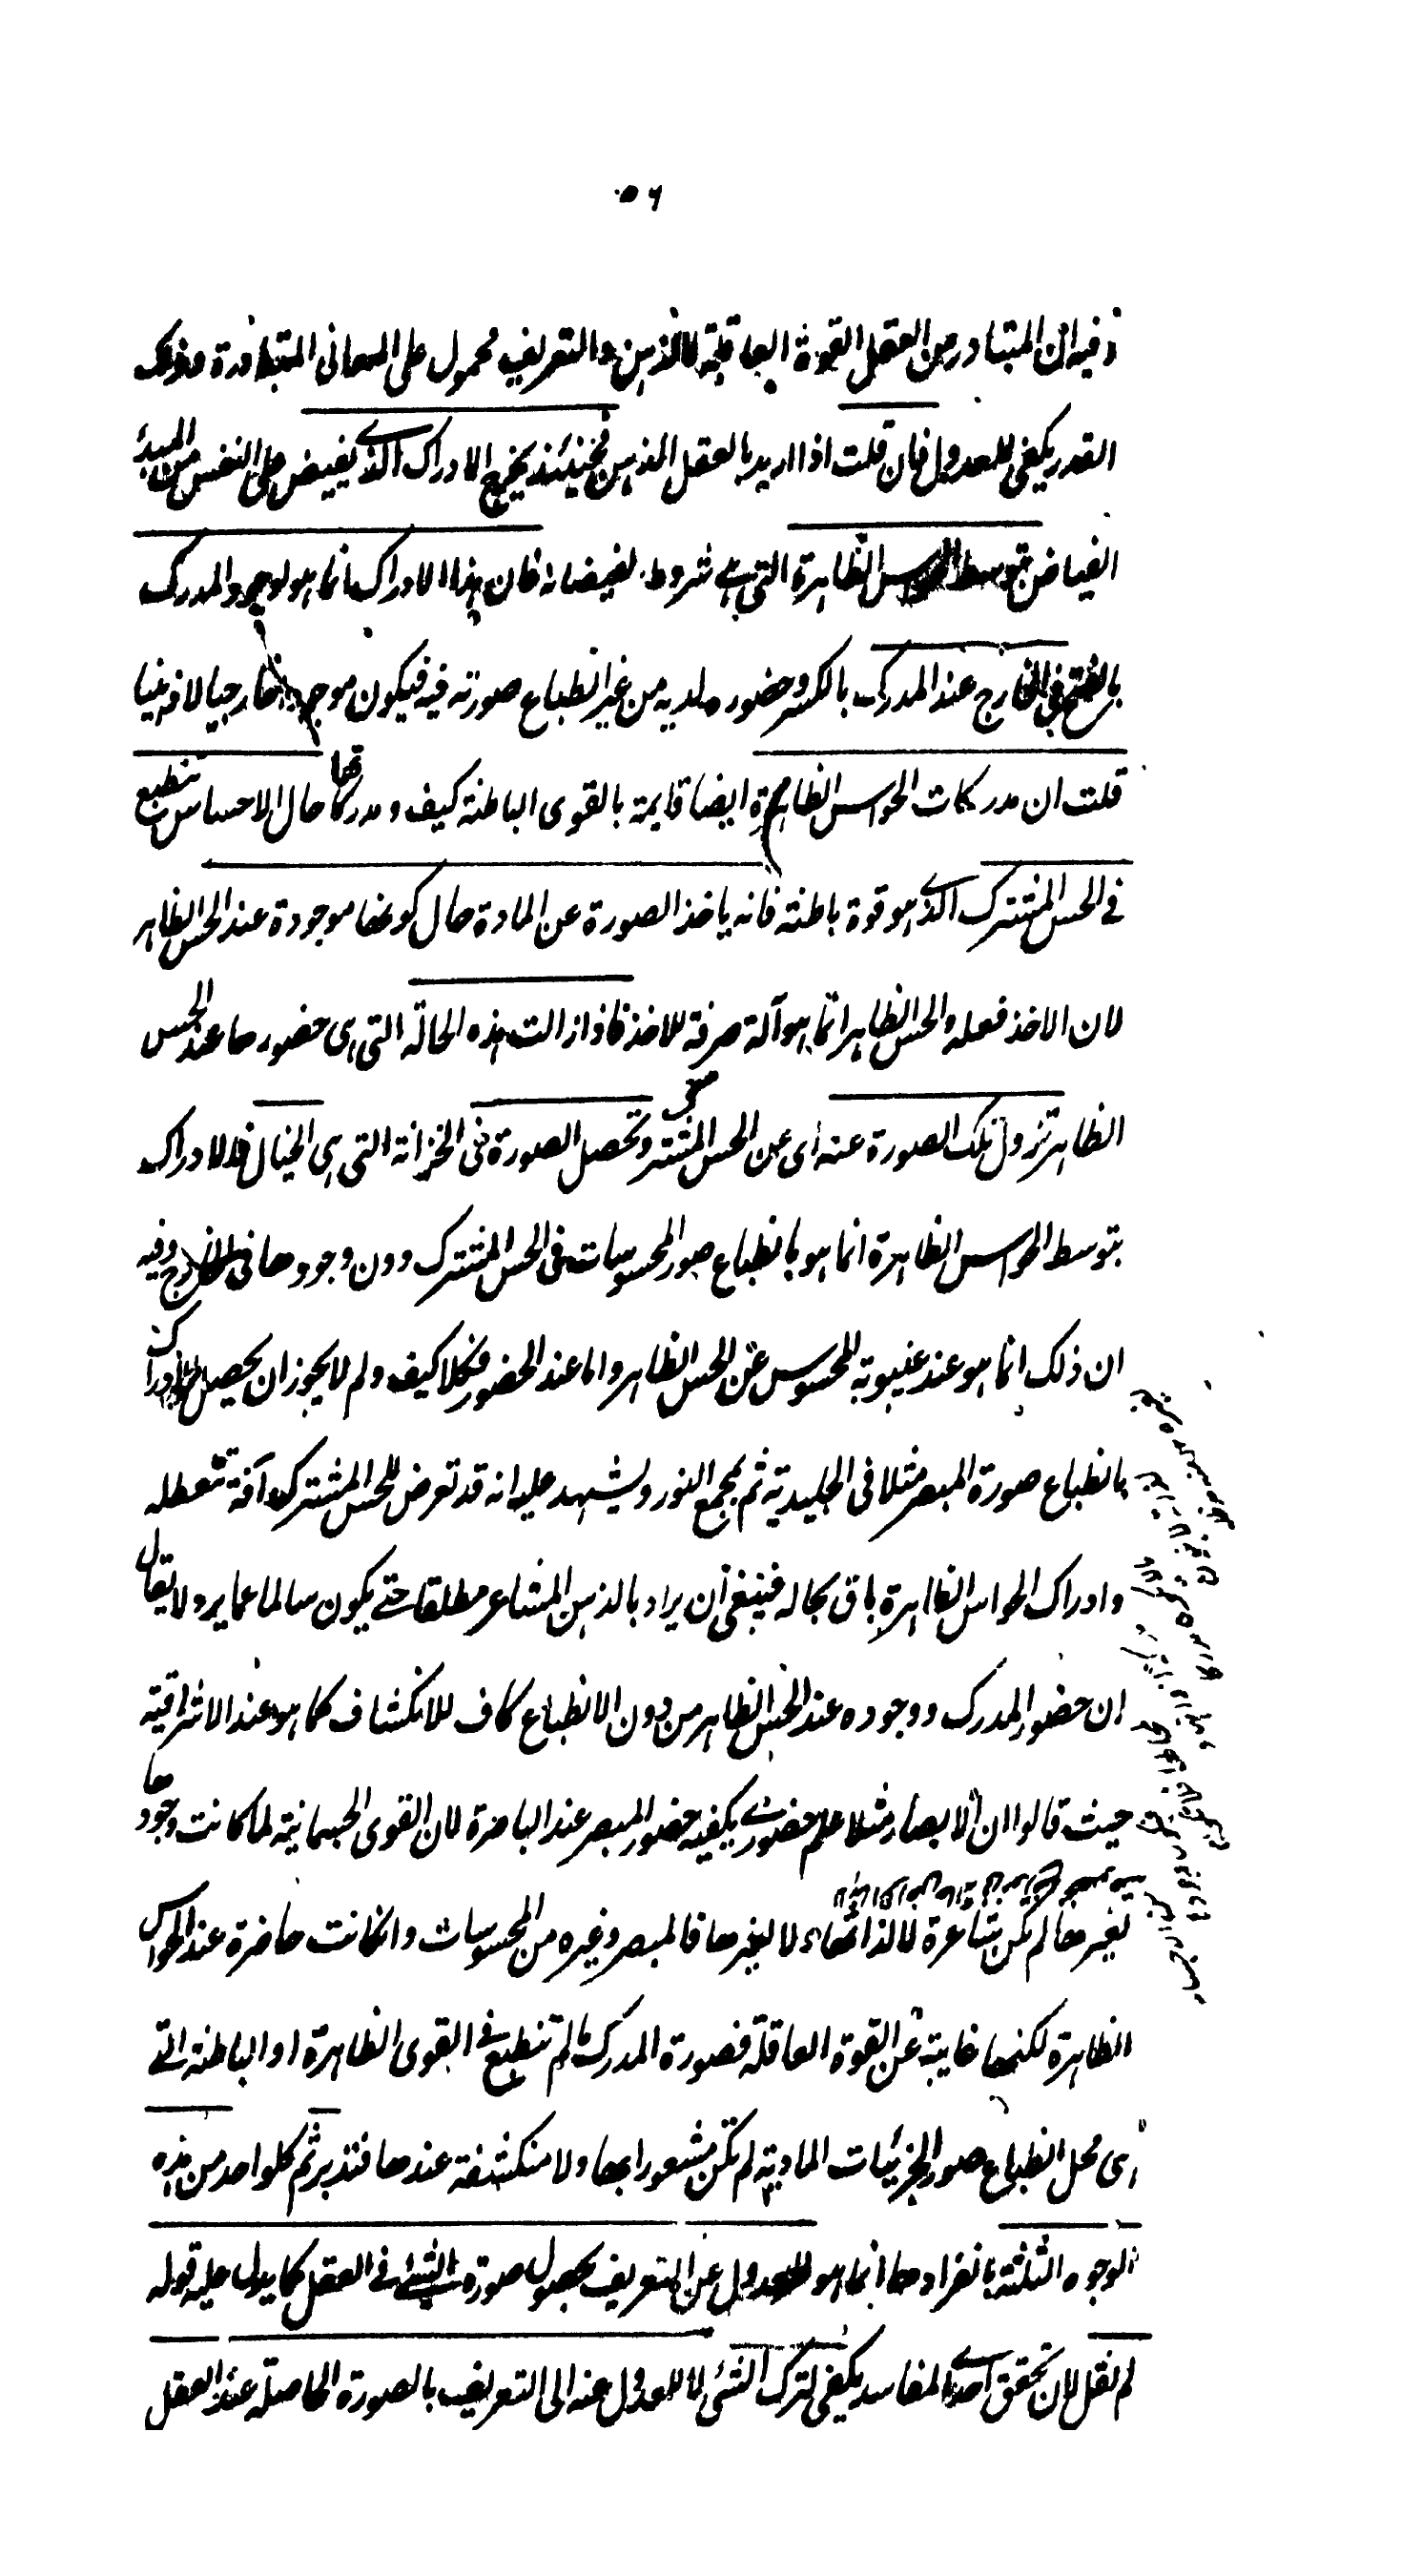 ٥٦
وفيه ان المتبادر من العقل القوة العاقلة لا الذهن والتعريف محمول على المعانى المتبادرة وذلك
القدر يكفى للعدول فان قلت اذا اريد بالعقل الذهن فحينئذ يخرج الادراك الذى يفيض على النفس من المبدئ
الفياض بتوسط الحواس الظاهرة التى هى شروط لفيضانه فان هذا الادراك انما هو لوجود المدرك
بالفتح فى الخارج عند المدرك بالكسر وحضوره لديه من غير انطباع صورته فيه فيكون موجودا خارجيا لا ذهنيا
قلت ان مدركات الحواس الظاهرة ايضا قايمة بالقوى الباطنة كيف ومدركاتها حال الاحساس تنطبع
فى الحس المشترك الذى هو قوة باطنة فانه ياخذ الصورة عن المادة حال كونها موجودة عند الحس الظاهر
لان الاخذ فعله والحس الظاهر انما هو آلة صرفة للاخذ فاذا زالت هذه الحالة التى هى حضورها عند الحس
الظاهر تزول تلك الصورة عنه اى عن الحس المشترك وتحصل الصورة فى الخزانة التى هى الخيال فالادراك
بتوسط الحواس الظاهرة انما هو بانطباع صور المحسوسات فى الحس المشترك دون وجودها فى الخارج وفيه
ان ذلك انما هو عند غيبوبة المحسوس عن الحس الظاهر واما عند الحضور فكلا كيف ولم لا يجوز ان يحصل الادراك
بانطباع صورة المبصر مثلا فى الجليدية ثم بمجمع النور ويشهد عليه انه قد تعرض للحس المشترك آفة تعطله
وادراك الحواس الظاهرة باق بحاله فينبغى ان يراد بالذهن المشاعر مطلقا حتى يكون سالما عما يرد ولا يقال
ان حضور المدرك ووجوده عند الحس الظاهر من دون الانطباع كاف للانكشاف كما هو عند الاشراقية
حيث قالوا ان الابصار مثلا علم حضورى يكفيه حضور المبصر عند الباصرة لان القوى الجسمانية لما كانت وجودها
لغيرها لم تكن شاعرة لا لذاتها ولا لغيرها فالمبصر وغيره من المحسوسات وان كانت حاضرة عند الحواس
الظاهرة لكنها غايبة عن القوة العاقلة فصورة المدرك ما لم تنطبع فى القوى الظاهرة او الباطنة التى
هى محل انطباع صور الجزئيات المادية لم تكن مشعورا بها ولا منكشفة عندها فتدبر ثم كلواحد من هذه
الوجوه الثلثة بانفرادها انما هو للعدول عن التعريف بحصول صورة الشئ فى العقل كما يدل عليه قوله
لم نقل لان تحقق احدى المفاسد يكفى لترك الشئ لا للعدول عنه الى التعريف بالصورة الحاصلة عند العقل